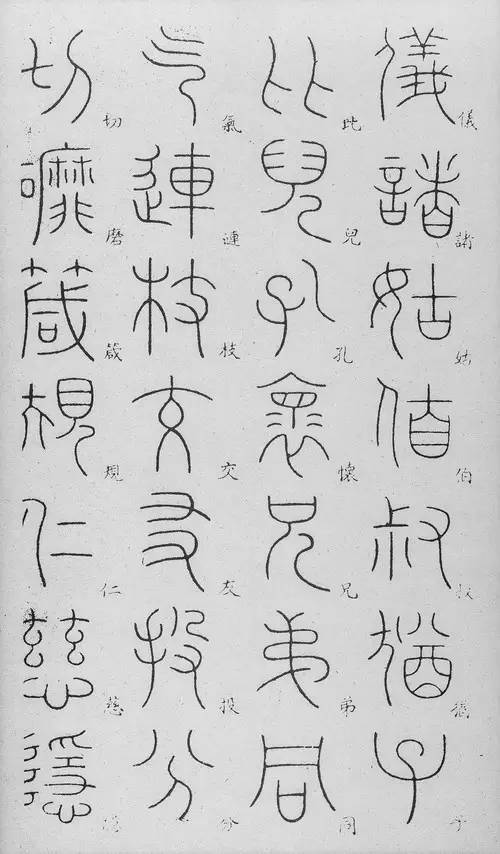 儀諸姑伯叔猶子
比兒孔懷兄弟同
气連枝交友投分
切磨箴規仁慈隱